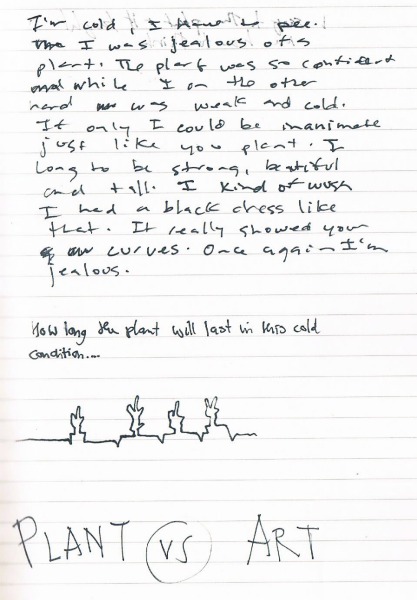 I'm cold, I have to pee.
I was jealous of a
plant. The plant was so confident
and while I on the other
hand was weak and cold.
If only I could be inanimate
just like you plant. I
long to be strong, beatiful
and tall. I kind of wish
I had a black dress like
that. It really showed your
curves. Once again I'm
jealous.
How long the plant will last in this cold
condition....
PLANT VS ART